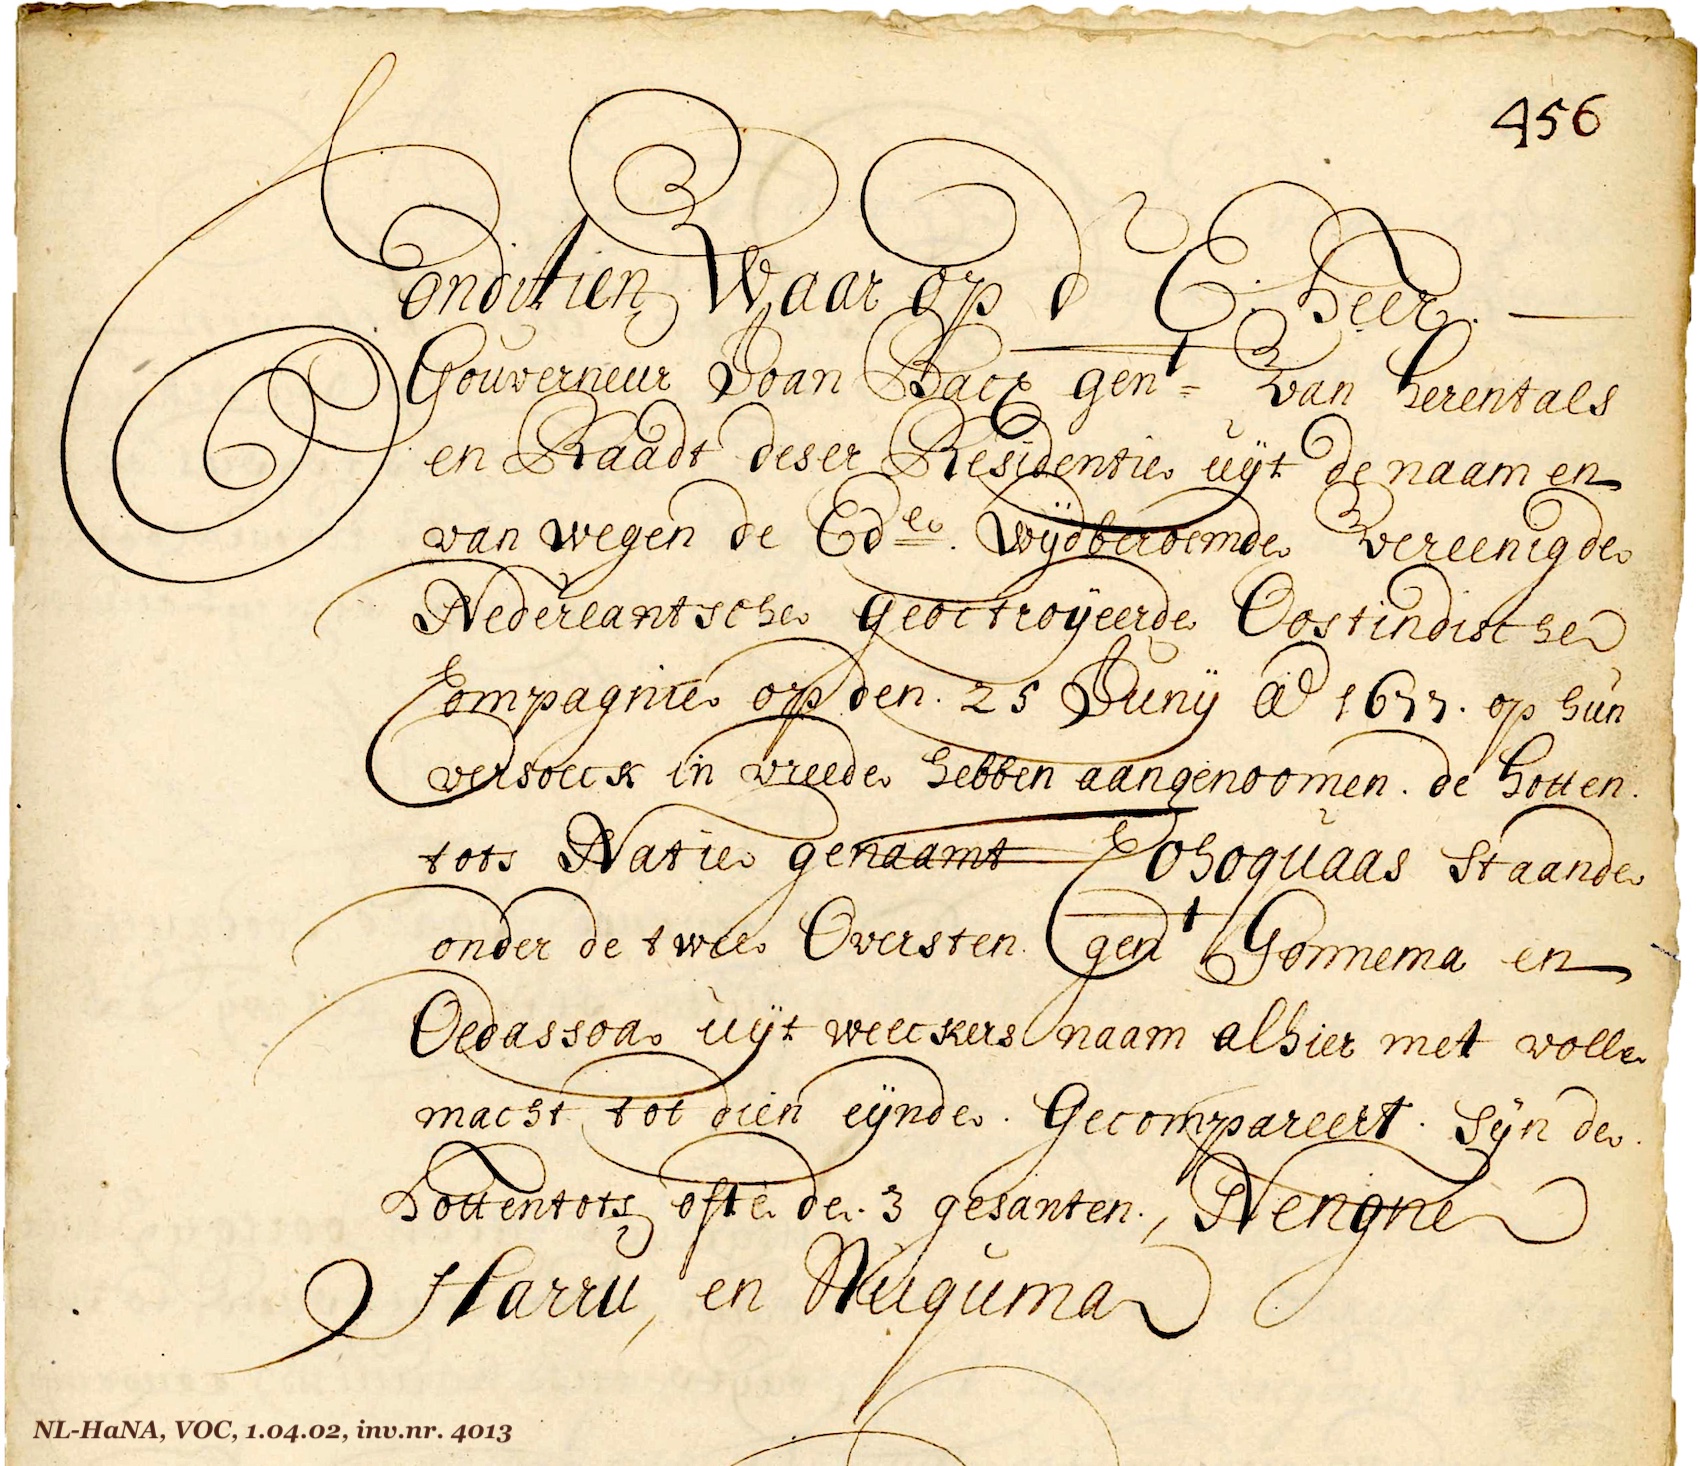 456
Conditien Waar op d' E. heer.
Gouverneur Joan Bacx gen.t van herentals
en Raadt deser Residentie uÿt de naam en
van wegen de Ed.le. Wÿdberoemde vereenigde
Nederlantsche geoctroÿeerde Oostindische
Compagnie op den. 25 Junÿ A.o 1677. op hun
versoeck in vreede hebben aangenoomen. de hotten.
tots Natie genaamt Cohoquaas staande
onder de twee Oversten. gen.t Gonnema en
Oedassoa uÿt weeckers naam alhier met volle
macht tot dien eÿnde. Gecompareert. sÿn de.
hottentots ofte de. 3 gesanten., Nengne
Harru, en Nuguma
NL-HaNA, VOC, 1.04.02, inv.nr. 4013